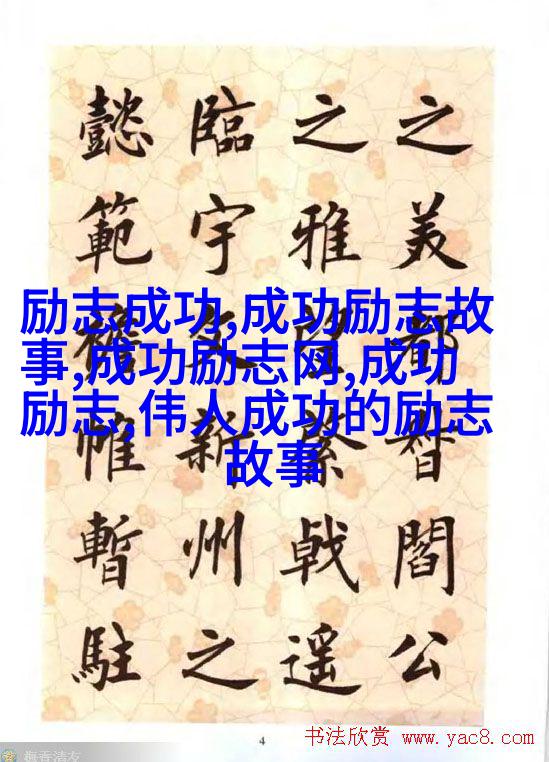 之美都督閻公
之雅望棨戟遥
臨宇文新州之
懿範襜帷暫駐
励志成功,成功励志故
事,成功励志网,成功
励志,伟人成功的励志
故事
4
书法欣赏 www.yac8.com